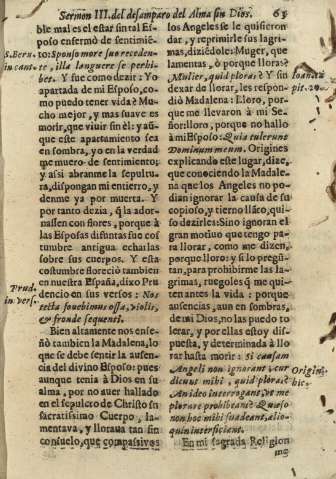 Sermon III. del desamparo del Alma sin Dios. 63
ble mal es el estar sin tal Es-
poso enfermò de sentimiē-
S. Ber. to: Sponso more suo recedente,
in cant. illa languere se perhi-
bet. Y fue como dezir: Yo
apartada de mi Esposo, co-
mo puedo tener vida? Mu-
cho mejor, y mas suave es
morir, que viuir sin èl: y aũ-
que este apartamiento sea
en sombra, yo en la verdad
me muero de sentimiento;
y assi abranme la sepultu-
ra, dispongan mi entierro, y
denme ya por muerta. Y
por tanto dezia, q̃ la ador-
nassen con flores, porque à
las Esposas difuntas fue cos-
tumbre antigua echarlas
sobre sus cuerpos. Y esta
costumbre floreciò tambien
Prud. en nuestra España, dixo Pru-
in vers. dencio en sus versos: Nos
tecta fovebimus ossa, violis,
& fronde sequenti.
Bien altamente nos ense-
ñò tambien la Madalena, lo
que se debe sentir la ausen-
cia del divino Esposo: pues
aunque tenia à Dios en su
alma, por no auer hallado
en el sepulcro de Christo su
sacratissimo Cuerpo, la-
mentava, y lloraua tan sin
consuelo, que compasivos
los Angeles se le quisieron
dar, y reprimirle sus lagri-
mas, diziẽdole: Muger, que
lamentas, ò porque lloras?
Mulier, quid ploras? Y sin Ioan.
dexar de llorar, les respon- 20.
diò Madalena: Lloro, por-
que me llevaron à mi Se-
ñor; lloro, porque no hallo
à mi Esposo: Quia tulerunt
Dominum meum. Origines
explicando este lugar, dize,
que conociendo la Madale-
na que los Angeles no po-
dian ignorar la causa de su
copioso, y tierno llãto, qui-
so dezirles: Sino ignoran el
gran motiuo que tengo pa-
ra llorar, como me dizen,
porque lloro: y si lo pregũ-
tan, para prohibirme las la-
grimas, ruegoles q̃ me qui-
ten antes la vida: porque
ausencias, aun en sombras,
de mi Dios, no las puedo to
lerar, y por ellas estoy dis-
puesta, y determinada à llo
rar hasta morir: si causam
Angeli non ignorant, cur Origin.
dicunt mihi, quid ploras? hic.
An ideo interrogant, vt me
plorare prohibeant? Quæso
non hoc mihi suadeant, alio-
quin interficiant.
En mi sagrada Religion